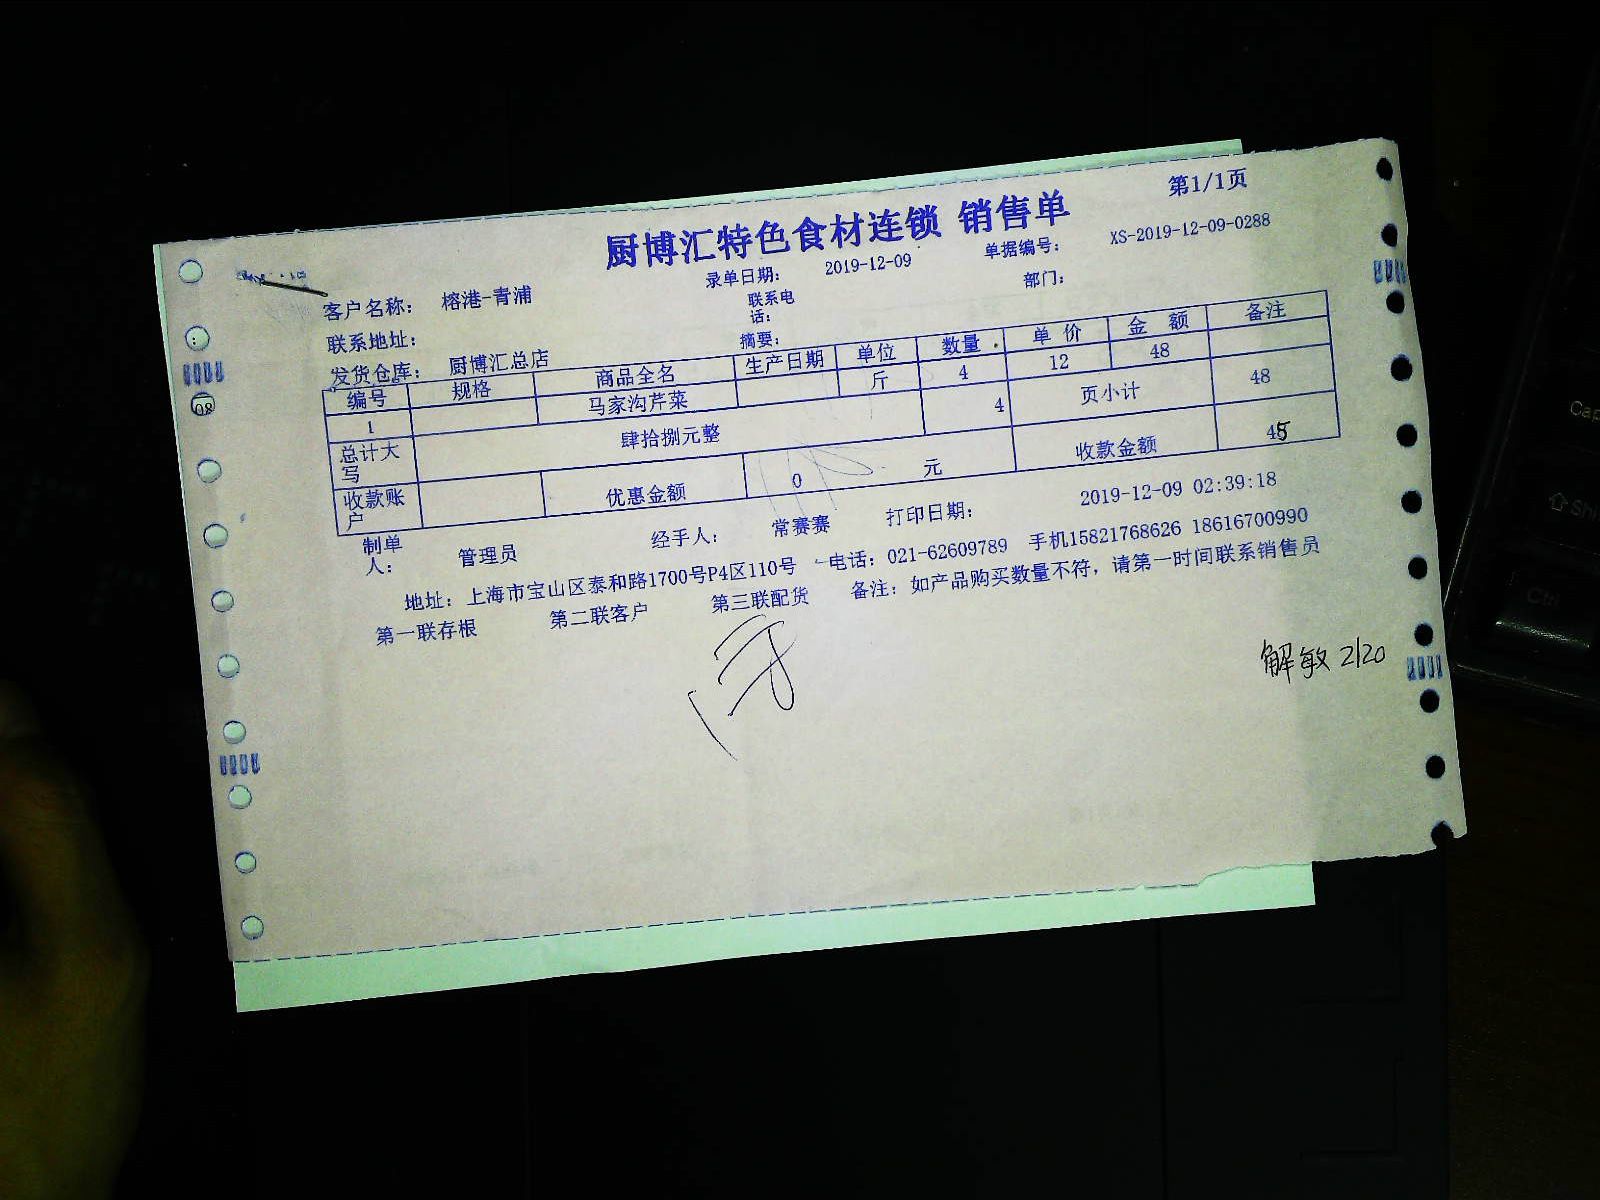 第1/1页
厨博汇特色食材连锁 销售单
客户名称： 榕港-青浦 录单日期： 2019-12-09 单据编号： XS-2019-12-09-0288
联系地址： 联系电话： 部门：
发货仓库： 厨博汇总店 摘要：
编号 规格 商品全名 生产日期 单位 数量 单价 金额 备注
1 马家沟芹菜 斤 4 12 48
总计大写 肆拾捌元整 4 页小计 48
收款账户 优惠金额 0 元 收款金额 45
制单人： 管理员 经手人： 常赛赛 打印日期： 2019-12-09 02:39:18
地址：上海市宝山区泰和路1700号P4区110号 电话：021-62609789 手机15821768626 18616700990
第一联存根 第二联客户 第三联配货 备注：如产品购买数量不符，请第一时间联系销售员
解敏 2120
08
Ctrl